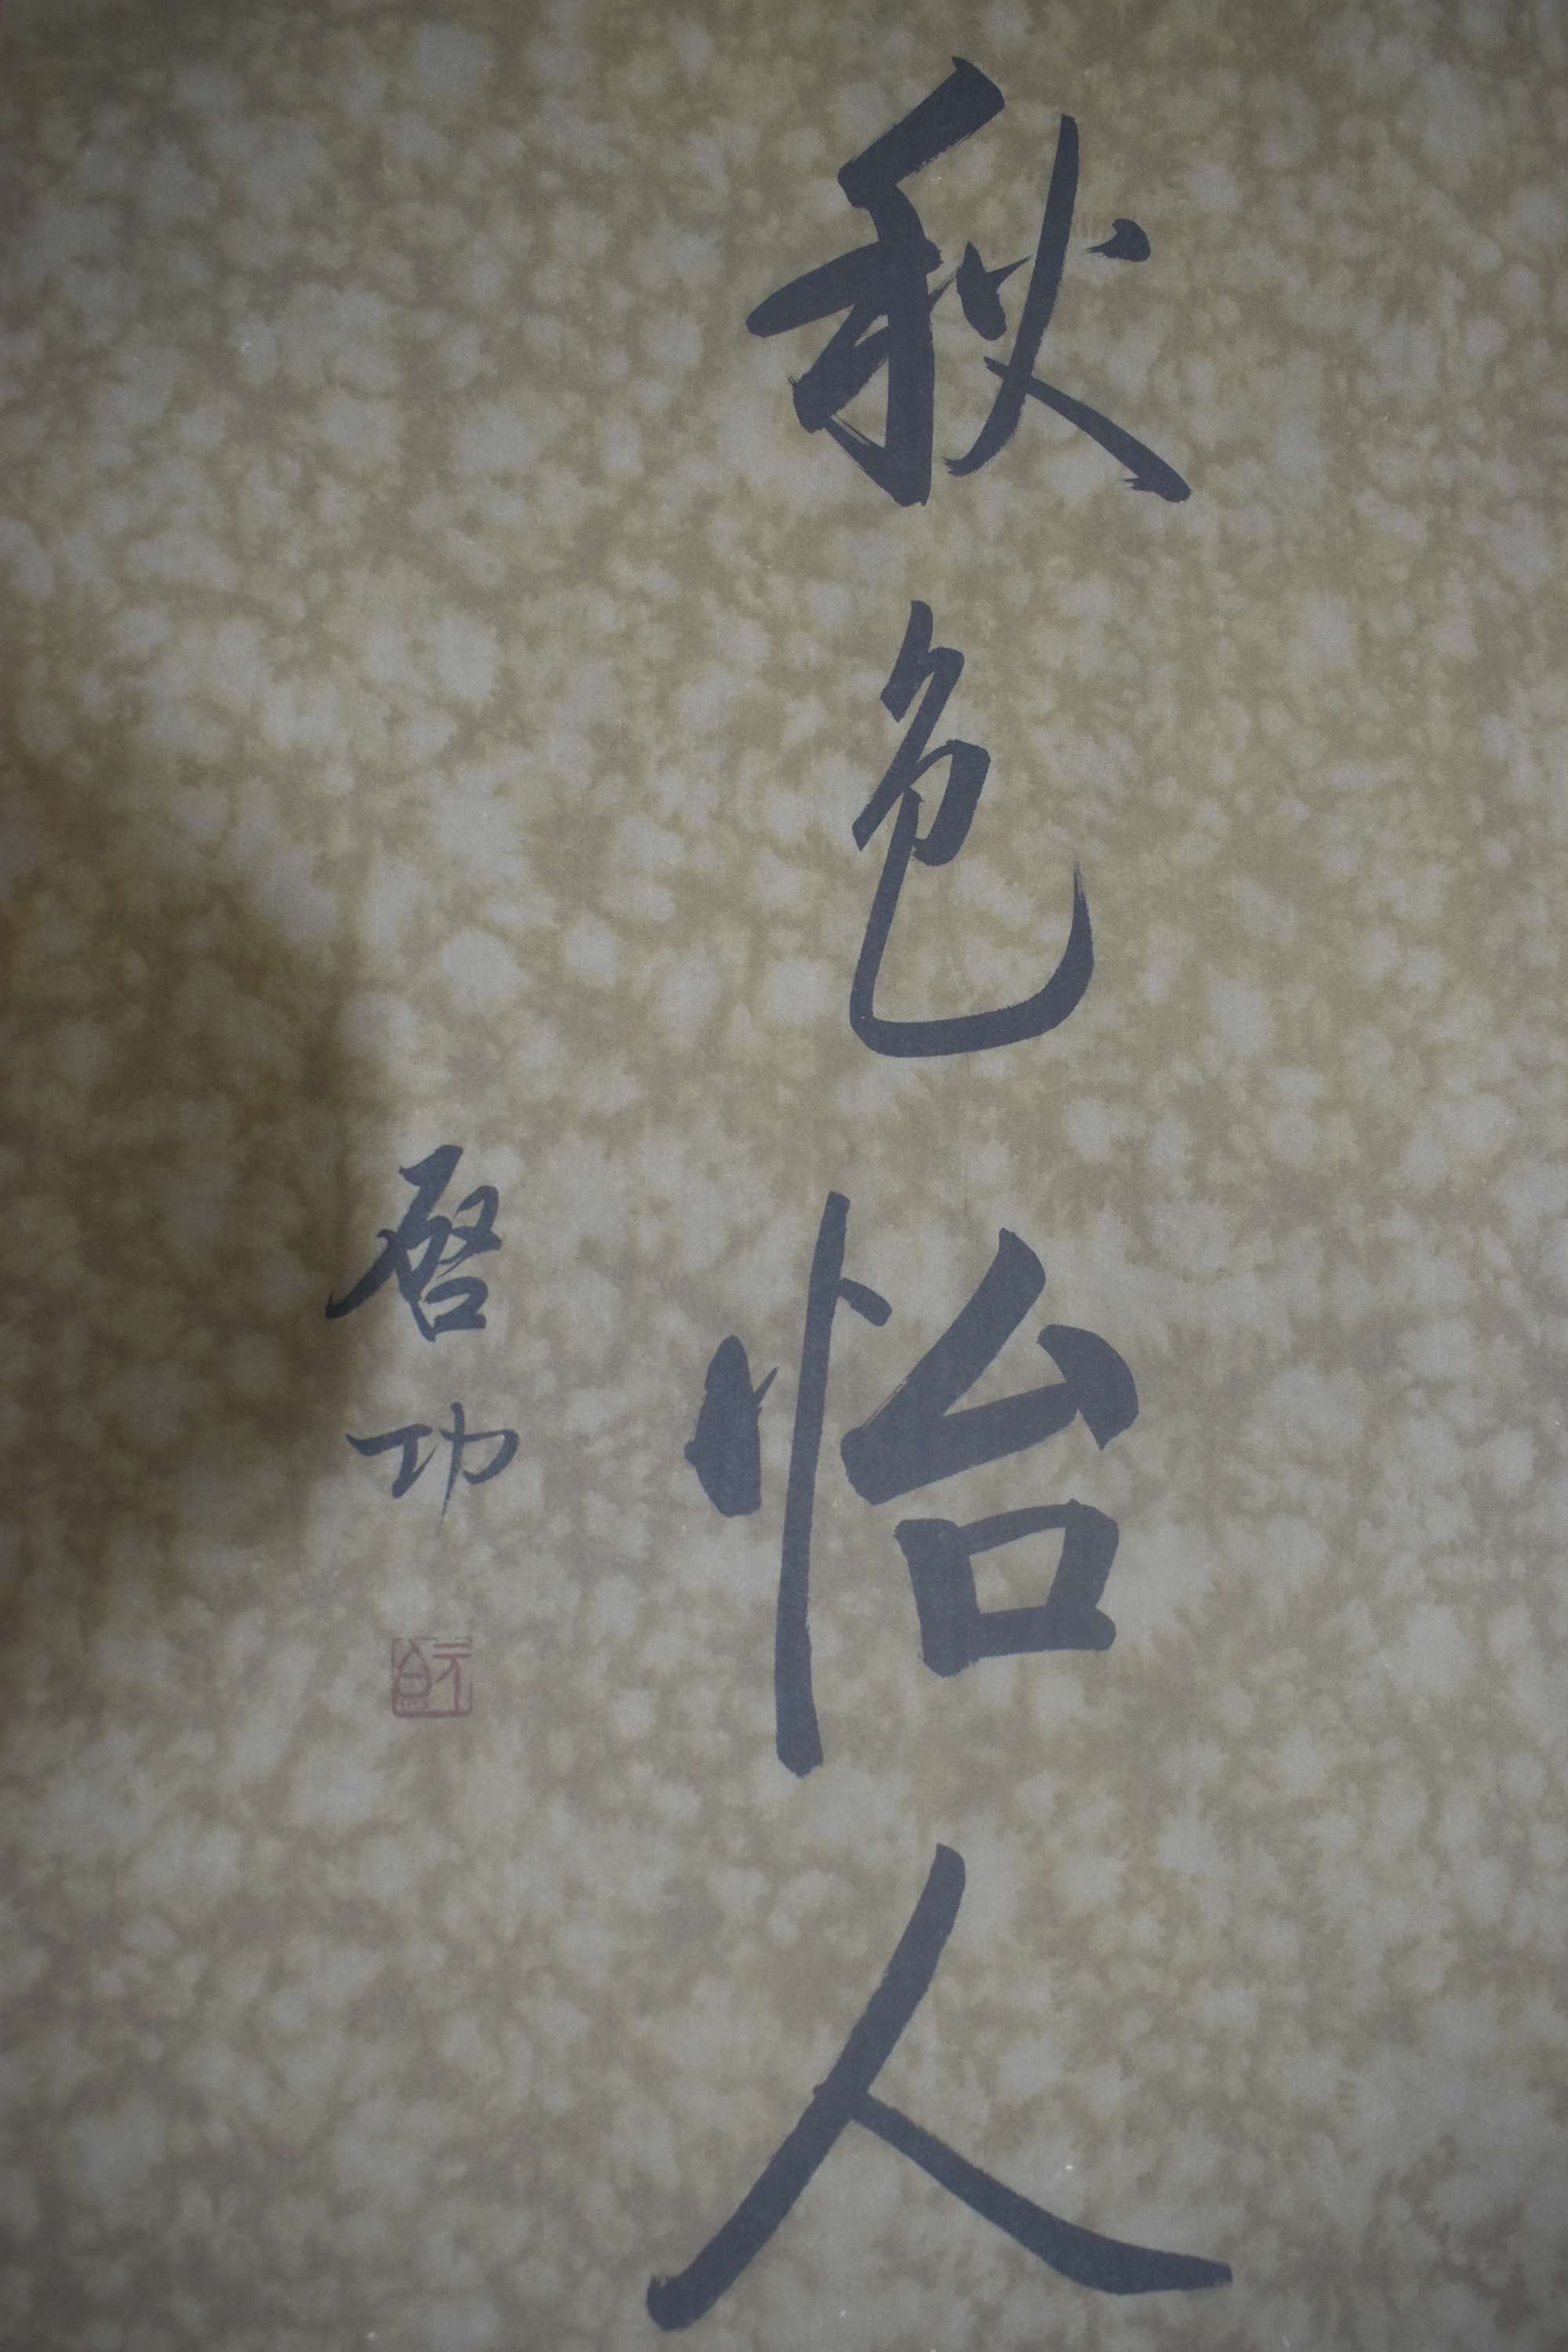 秋色怡人
启功